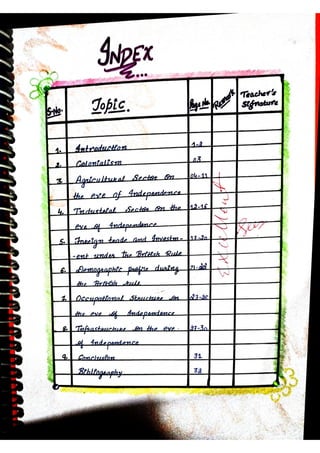 INDEX
S.No. Topic Page No. Remark Teacher's Signature
1. Introduction 1-2
2. Colonialism 03
3. Agricultural Sector on 04-11
the eve of Independence
4. Industrial Sector on the 12-16
eve of Independence
5. Foreign trade and Investm-
-ent under the British Rule
6. Demographic profile during
the British Rule
7. Occupational Structure on
the eve of Independence
8. Infrastructure on the eve
of Independence
9. Conclusion 31
Bibliography
Excellent